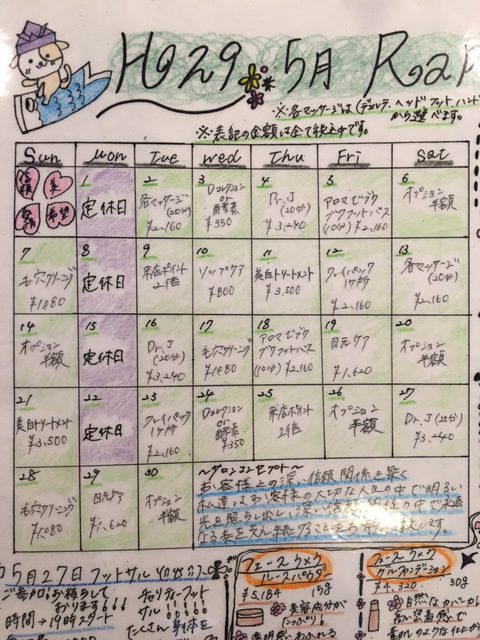 H29.5月 Roa
※各マッサージは(デコルテ、ヘッド、フット、ハンド
から選べます。
※表記の金額は全て税込みです。
Sun Mon Tue Wed Thu Fri Sat
信頼 愛 希望
1 定休日
2 各マッサージ(20分) ¥2,160
3 Dコレクション or 酵素 ¥350
4 Dr.J (20分) ¥3,240
5 アロマでブクブクフットバス (10分) ¥2,160
6 オプション半額
7 毛穴クリーニング ¥1,080
8 定休日
9 来店ポイント2倍
10 リップケア ¥800
11 美白トリートメント ¥3,500
12 クレイパック ¥2,160
13 各マッサージ(20分) ¥2,160
14 オプション半額
15 定休日
16 Dr.J (20分) ¥3,240
17 毛穴クリーニング ¥1,080
18 アロマでブクブクフットバス (10分) ¥2,160
19 目元ケア ¥1,620
20 オプション半額
21 美白トリートメント ¥3,500
22 定休日
23 クレイパック ¥2,160
24 Dコレクション or 酵素 ¥350
25 来店ポイント2倍
26 オプション半額
27 Dr.J (20分) ¥3,240
28 毛穴クリーニング ¥1,080
29 目元ケア ¥1,620
30 オプション半額
〜サロンコンセプト〜
お客様との深い信頼関係を築く
私達はお客様の大切な人生の中で明るい
光を照らし出し
5月27日フットサル
ご参加お待ちして
おります!!!
時間→19時スタート
チャリティーフット
サル!!!!
たくさん身体を
フェースウメウ
ルースパウダー
¥5,184 15g
美容成分が
たっぷり
透明感あふれる
フェースウメウ
ファンデーション
¥4,320 30g
自然なカバー力
高い密着感で